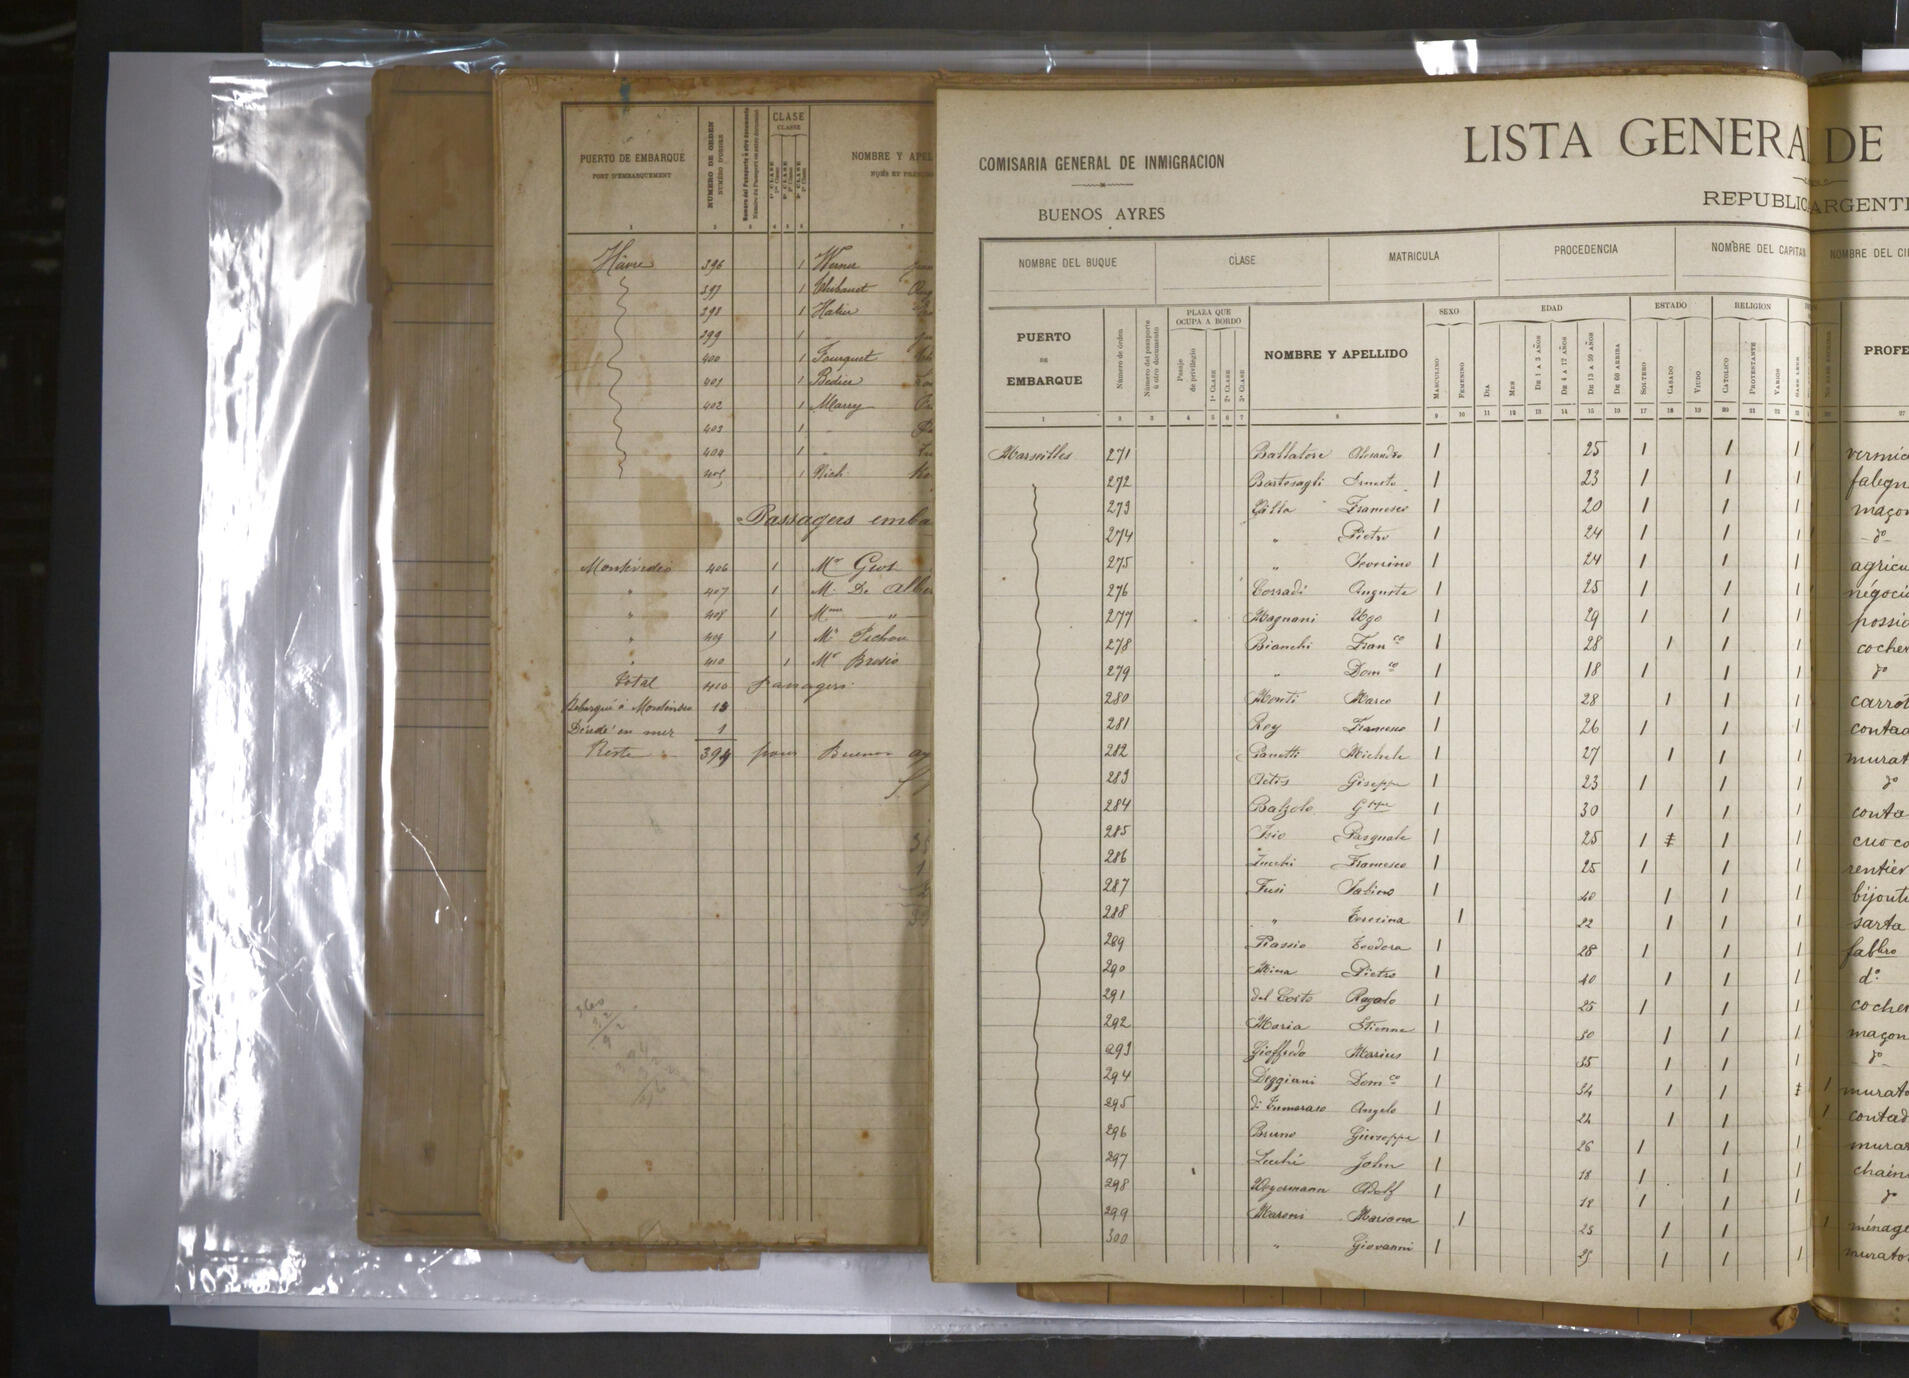 PUERTO DE EMBARQUE
PORT D'EMBARQUEMENT
NUMERO DE ORDEN
NUMÉRO D'ORDRE
CLASE
CLASSE
1ª CLASE
2ª CLASE
3ª CLASE
NOMBRE Y APEL
1 2 3 4 5 6 7
Hâvre 396 1 Werner
397 1 Thibaut
398 1
399 1
400 1 Fourquet
401 1 Bedier
402 1 Marry
403 1 "
404 1 "
405 1 Rich
Passagers emba
Montévideo 406 1 Mr Gros
" 407 1 M. De Alb
" 408 1 Mme "
" 409 1 Mr Pichon
" 410 1 Mr Bresio
Total 410 passagers
Débarqué à Montévideo 15
Décédé en mer 1
Reste 394 pour Buenos ay
COMISARIA GENERAL DE INMIGRACION
BUENOS AYRES
LISTA GENERA DE
REPUBLIC ARGENTI
NOMBRE DEL BUQUE CLASE MATRICULA PROCEDENCIA NOMBRE DEL CAPITAN NOMBRE DEL CI
PUERTO DE EMBARQUE
Número de órden
Número del pasaporte ú otro documento
PLAZA QUE OCUPA A BORDO
Pasaje de privilegio
1ª CLASE
2ª CLASE
3ª CLASE
NOMBRE Y APELLIDO
SEXO
MASCULINO
FEMENINO
EDAD
DIA
MES
DE 1 A 3 AÑOS
DE 4 A 12 AÑOS
DE 13 A 59 AÑOS
DE 60 ARRIBA
ESTADO
SOLTERO
CASADO
VIUDO
RELIGION
CATOLICO
PROTESTANTE
VARIOS
SABE LEER
PROFE
1 2 3 4 5 6 7 8 9 10 11 12 13 14 15 16 17 18 19 20 21 22 23 27
Marseilles 271 Ballatore Alesandro 1 25 1 1 1 vermic
272 Bartesaghi Ernesto 1 23 1 1 1 falegn
273 Galla Francesco 1 20 1 1 1 maçon
274 " Pietro 1 24 1 1 1 dº
275 " Severino 1 24 1 1 1 agricu
276 Corradi Auguste 1 25 1 1 1 négocia
277 Magnani Ugo 1 29 1 1 1 possid
278 Bianchi Franco 1 28 1 1 1 cocher
279 " Domco 1 18 1 1 1 dº
280 Monti Marco 1 28 1 1 1 carrot
281 Rey Francesco 1 26 1 1 1 contad
282 Panetti Michele 1 27 1 1 1 murat
283 Actis Giseppe 1 23 1 1 1 dº
284 Balzola Gppe 1 30 1 1 1 conta
285 Isio Pasquale 1 25 1 1 1 cuoco
286 Zucchi Francesco 1 25 1 1 1 rentier
287 Fusi Sabino 1 40 1 1 1 bijouti
288 " Teresina 1 22 1 1 1 sarta
289 Piassio Teodora 1 28 1 1 1 fabbro
290 Mina Pietro 1 40 1 1 1 dº
291 del Costo 1 25 1 1 1 cocher
292 Maria Etienne 1 50 1 1 1 maçon
293 Gioffredo Marius 1 35 1 1 1 dº
294 Deggiani Domco 1 34 1 1 1 murato
295 Angelo 1 24 1 1 1 contad
296 Bruno Giuseppe 1 26 1 1 1 murat
297 John 1 18 1 1 1
298 Adolf 1 18 1 1 1 dº
299 Maroni Mariana 1 25 1 1 1 ménage
300 " Giovanni 1 1 1 1 murato